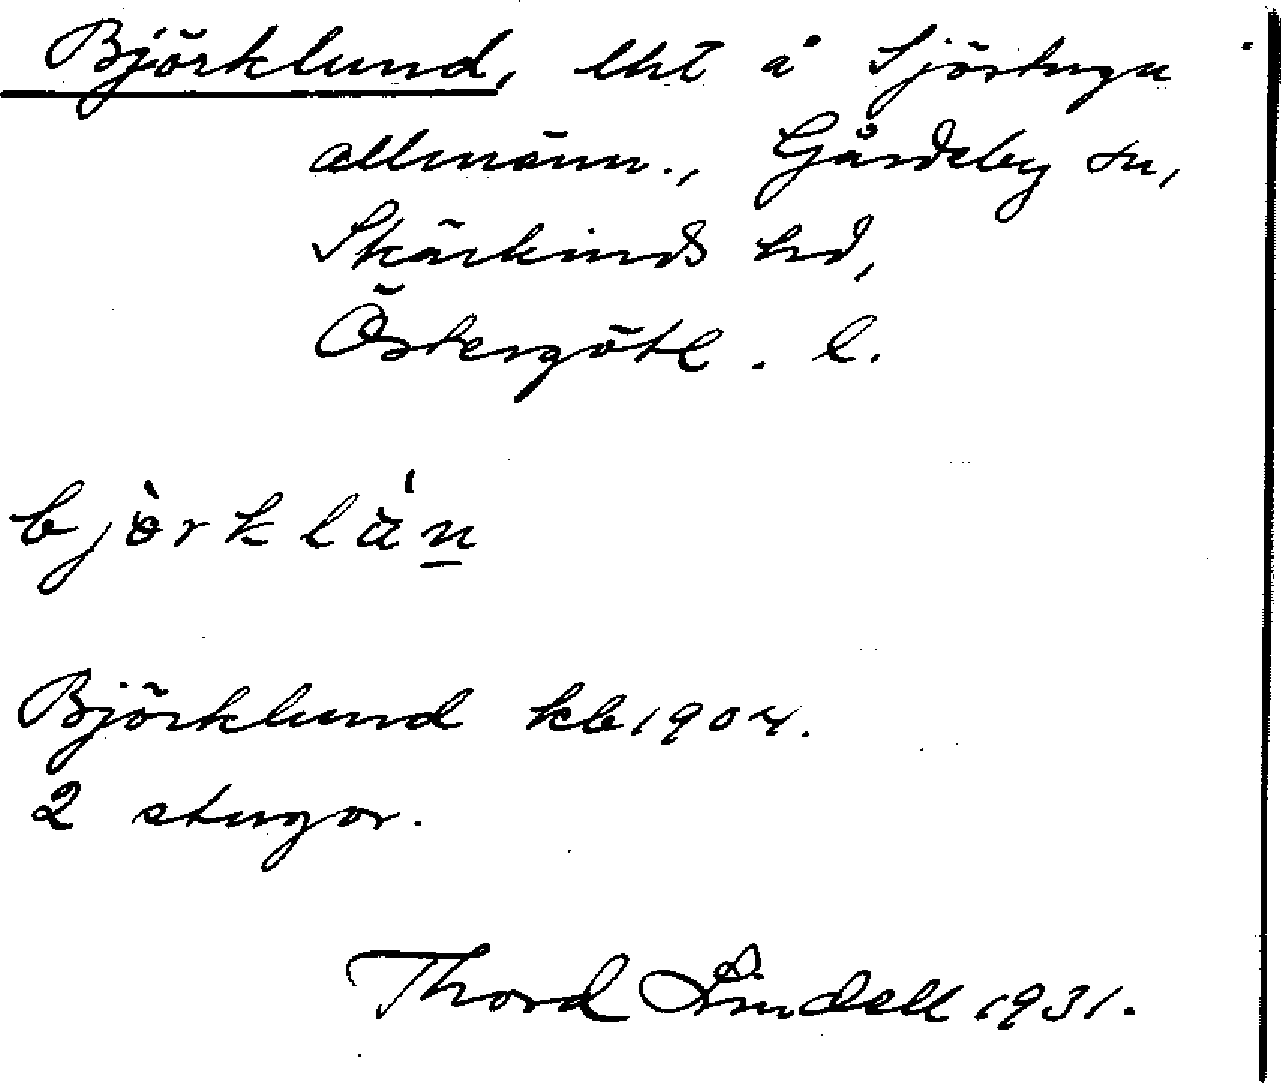 Björklund, lht å Sjörtuga
allmänn., Gårdeby sn,
Skärkinds hd,
Östergötl. l.
björklàn
Björklund kb 1904.
2 stugor.
Thord Lindell 1931.